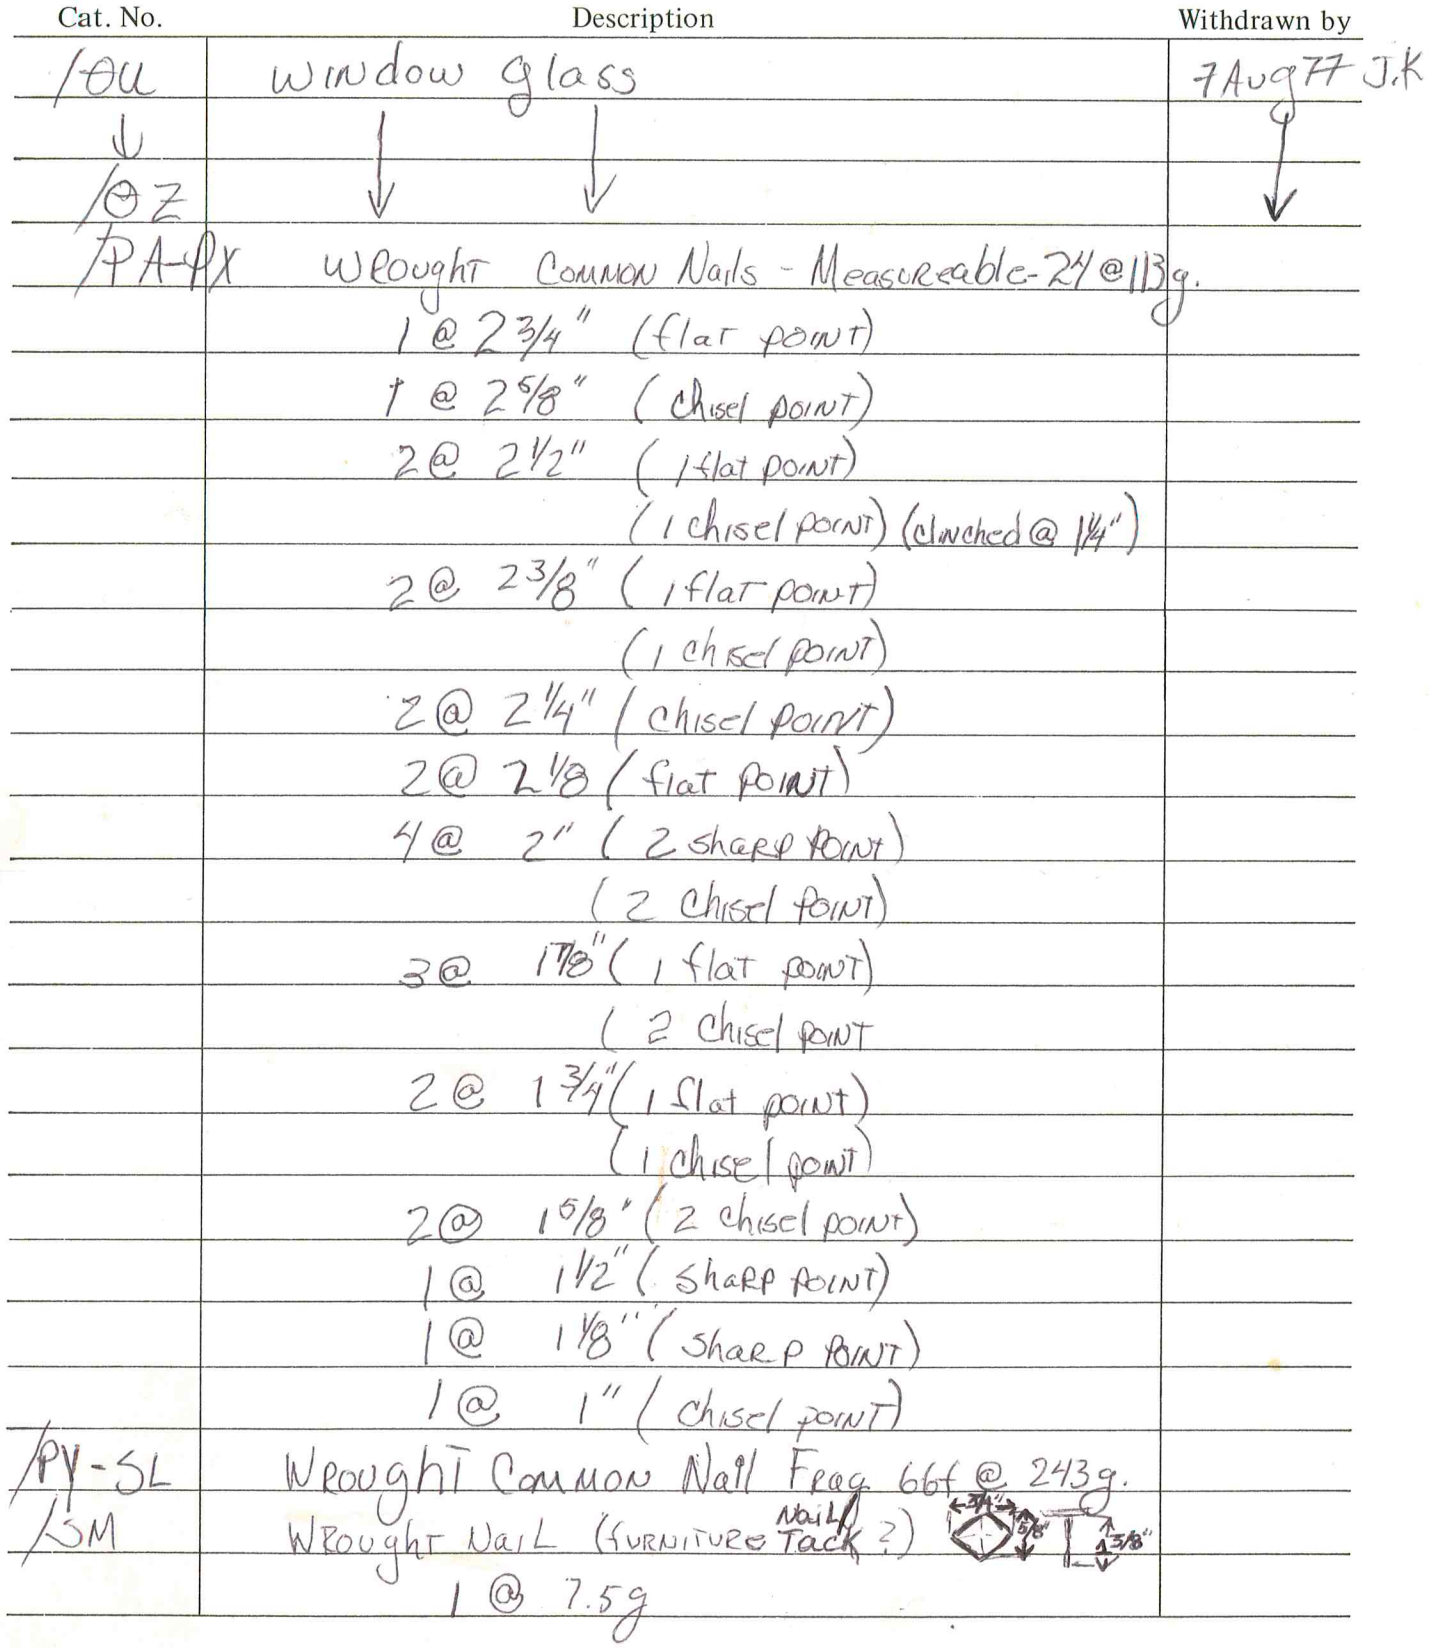 Cat. No. Description Withdrawn by
/ØU Window Glass 7 Aug 77 J.K
/ØZ
/PA-PX Wrought Common Nails - Measureable - 24 @ 113g.
1 @ 2 3/4" (flat point)
1 @ 2 5/8" (chisel point)
2 @ 2 1/2" (1 flat point)
(1 chisel point) (clinched @ 1 1/4")
2 @ 2 3/8" (1 flat point)
(1 chisel point)
2 @ 2 1/4" (chisel point)
2 @ 2 1/8 (flat point)
4 @ 2" (2 sharp point)
(2 chisel point)
3 @ 1 7/8" (1 flat point)
(2 chisel point
2 @ 1 3/4" (1 flat point)
(1 chisel point)
2 @ 1 5/8" (2 chisel point)
1 @ 1 1/2" (sharp point)
1 @ 1 1/8" (sharp point)
1 @ 1" (chisel point)
/PY-SL Wrought Common Nail Frag 66f @ 243g.
/SM Wrought Nail (furniture Nail/Tack ?) 3/4" 5/8" 1 3/8"
1 @ 7.5g